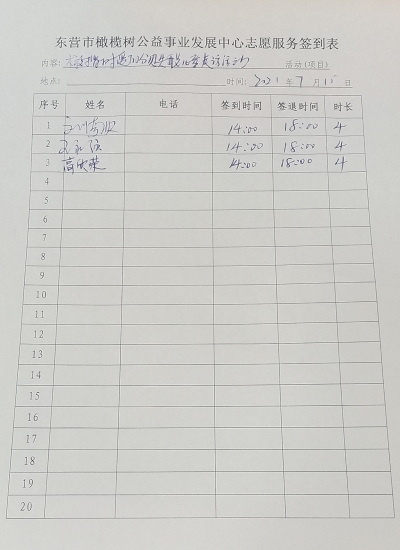 东营市橄榄树公益事业发展中心志愿服务签到表
内容: 活动(项目)
地点: 时间: 年 7 月 15 日
序号 姓名 电话 签到时间 签退时间 时长
1 14:00 18:00 4
2 14:00 18:00 4
3 高欣荣 14:00 18:00 4
4
5
6
7
8
9
10
11
12
13
14
15
16
17
18
19
20